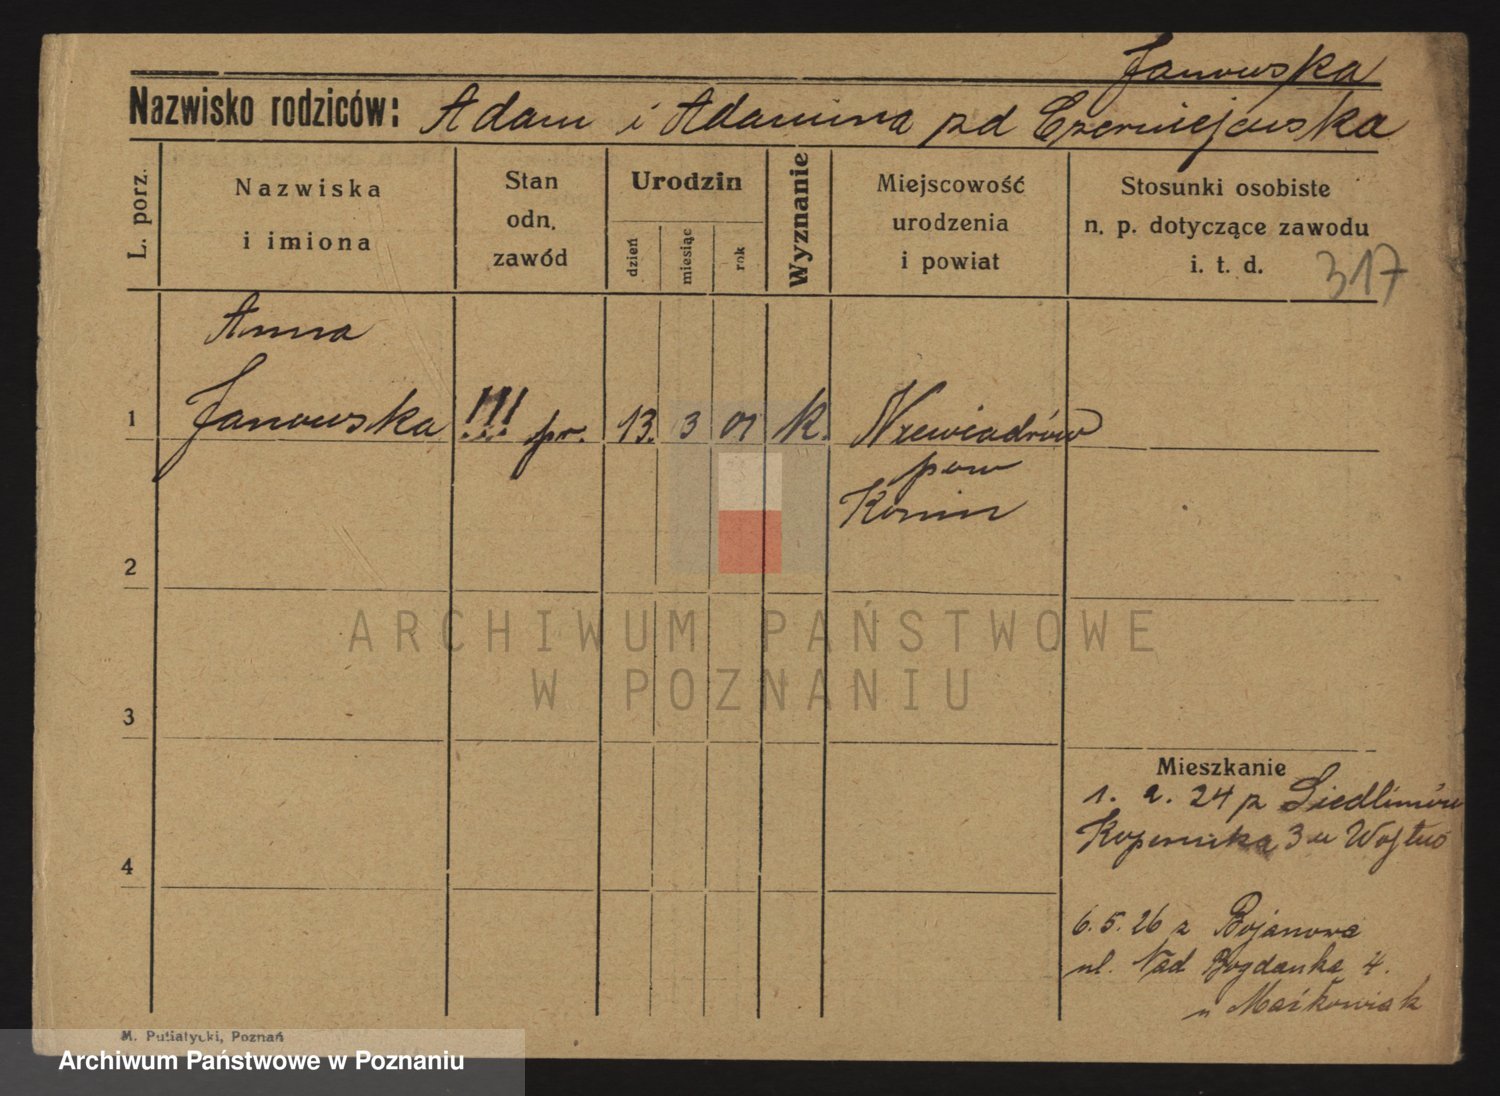 Janowska
Nazwisko rodziców: Adam i Adamina zd Czerniejewska
L. porz.
Nazwiska
i imiona
Stan
odn.
zawód
Urodzin
dzień
miesiąc
rok
Wyznanie
Miejscowość
urodzenia
i powiat
Stosunki osobiste
n. p. dotyczące zawodu
i. t. d.
317
Anna
1 Janowska !!! pr. 13. 3 01 k.
pow
Konin
2
ARCHIWUM PAŃSTWOWE
W POZNANIU
3
Mieszkanie
1. 2. 24 z
Kopernika 3 u
4
6. 5. 26 z Bojanowa
ul. Nad Bogdanka 4.
u Maćkowiak
M. Putiatycki, Poznań
Archiwum Państwowe w Poznaniu